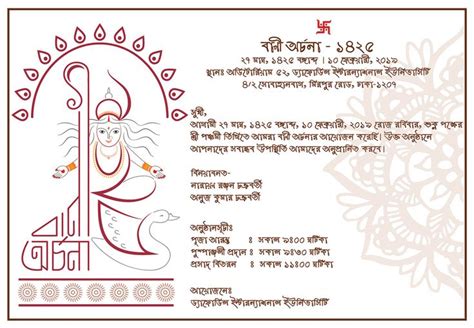 বাণী অর্চনা - ১৪২৫
২৭ মাঘ, ১৪২৫ বঙ্গাব্দ । ১০ ফেব্রুয়ারী, ২০১৯
স্থানঃ অডিটোরিয়াম ৫২, ড্যাফোডিল ইন্টারন্যাশনাল ইউনিভার্সিটি
৪/২ সোবহানবাগ, মিরপুর রোড, ঢাকা-১২০৭
সুধী,
আগামী ২৭ মাঘ, ১৪২৫ বঙ্গাব্দ, ১০ ফেব্রুয়ারী, ২০১৯ রোজ রবিবার, শুক্ল পক্ষের
শ্রী পঞ্চমী তিথিতে আমরা বাণী অর্চনার আয়োজন করেছি। উক্ত অনুষ্ঠানে
আপনাদের সবান্ধব উপস্থিতি আমাদের অনুপ্রানিত করবে।
বিনয়াবনত-
নারায়ন রঞ্জন চক্রবর্তী
অনুজ কুমার চক্রবর্তী
অনুষ্ঠানসূচীঃ
পূজা আরম্ভ : সকাল ৯ঃ০০ ঘটিকা
পুষ্পাঞ্জলী প্রদান : সকাল ৯ঃ৩০ ঘটিকা
প্রসাদ বিতরন : সকাল ১১ঃ০০ ঘটিকা
আয়োজনেঃ
ড্যাফোডিল ইন্টারন্যাশনাল ইউনিভার্সিটি
বাণী
অর্চনা